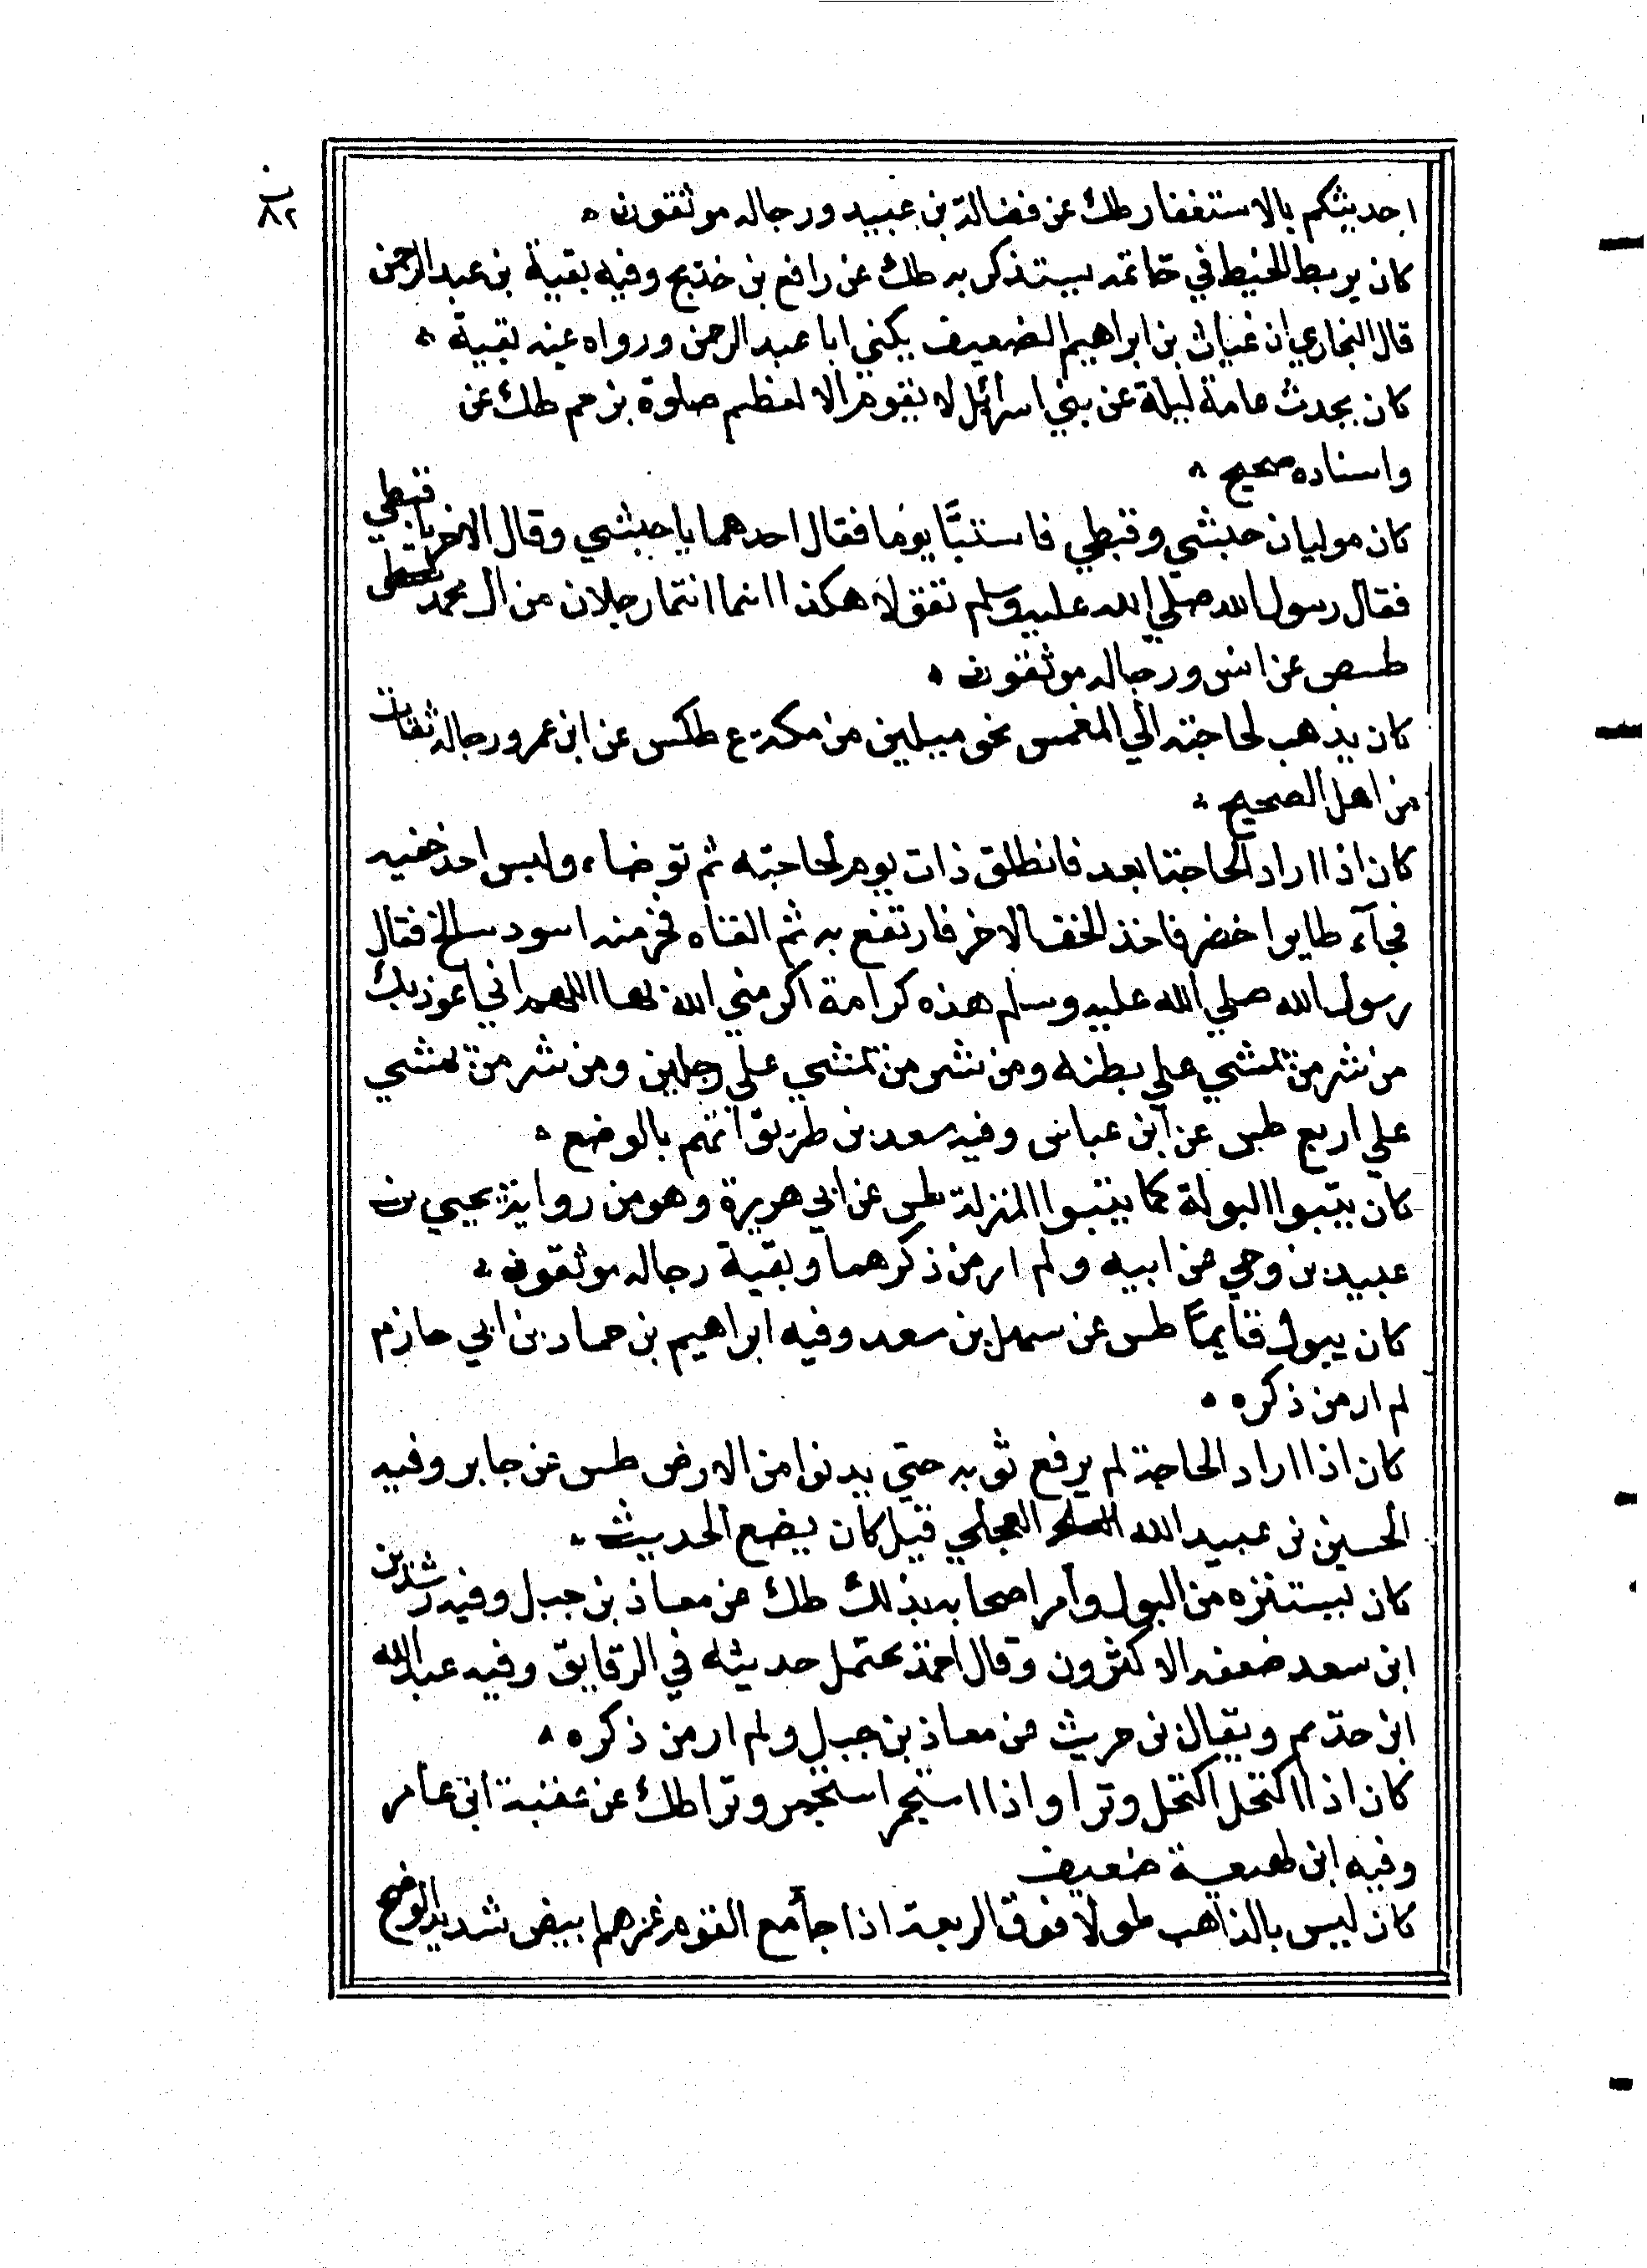 ٨٢
احديثكم بالاستغفار طك عن فضالة بن عبيد ورجاله موثقون
كان يربط الخيط في خاتمه يستذكر به طك عن رافع بن خديج وفيه بقية بن عبد الرحمن
قال البخاري ان غياث بن ابراهيم الضعيف يكني ابا عبد الرحمن ورواه عنه بقية
كان يحدث عامة ليلة عن بني اسرائل لا يقوم الا لعظم صلوة بز حم طك عن
واسناده صحيح
كان موليان حبشي وقبطي فاستبَّا يوما فقال احدهما يا حبشي وقال الاخر يا قبطي
فقال رسول الله صلي الله عليه وسلم تقولا هكذا انما انتما رجلان من ال محمد
طسص عن انس ورجاله موثقون
كان يذهب لحاجته الي المغمس نحو ميلين من مكة ع طكس عن ابن عمر ورجاله ثقات
من اهل الصحيح
كان اذا اراد الحاجة ابعد فانطلق ذات يوم لحاجته ثم توضاء ولبس احد خفيه
فجآء طاير اخضر فاخذ الخف الاخر فارتفع به ثم القاه فخر منه اسود سالخ فقال
رسول الله صلي الله عليه وسلم هذه كرامة اكرمني الله بها اللهم اني اعوذ بك
من شر من تمشي علي بطنه ومن شر من تمشي علي رجلين ومن شر من تمشي
علي اربع طس عن ابن عباس وفيه سعد بن طريق اتهم بالوضع
كان يتبوا البولة كما يتبوا المنزلة طس عن ابي هريرة وهو من رواية يحيي بن
عبيد بن وحي عن ابيه ولم ار من ذكرهما وبقية رجاله موثقون
كان يبول قايمًا طس عن سهل بن سعد وفيه ابراهيم بن حماد بن ابي حازم
لم ار من ذكره
كان اذا اراد الحاجة لم يرفع ثوبه حتي يدنوا من الارض طس عن جابر وفيه
الحسين بن عبيد الله العجلي قيل كان يضع الحديث
كان يستنزه من البول وأمر اصحابه بذلك طك عن معاذ بن جبل وفيه رشدين
ابن سعد ضعفه الاكثرون وقال احمد يحتمل حديثه في الرقايق وفيه عبد الله
ابن حذيم ويقال بن حريث عن معاذ بن جبل ولم ار من ذكره
كان اذا اكتحل اكتحل وترا واذا استجمر استجمر وترا طك عن عقبة ابن عامر
وفيه ابن لهيعة ضعيف
كان ليس بالذاهب طولا فوق الربعة اذا جأ مع القوم غمرهم ابيض شديد الوضح